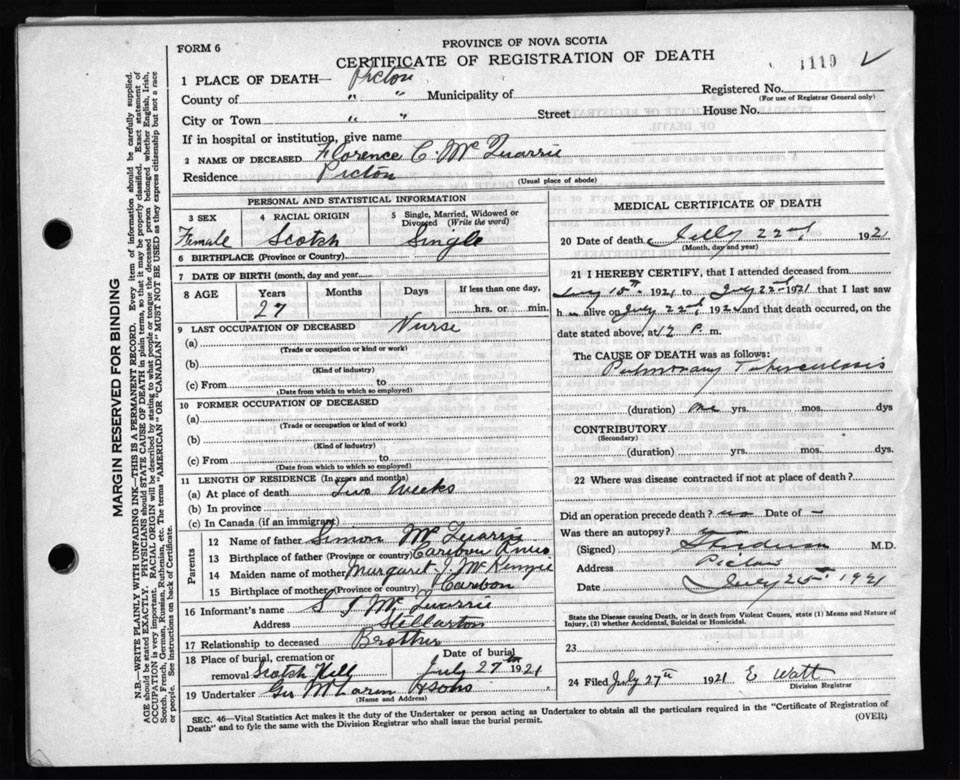 FORM 6
PROVINCE OF NOVA SCOTIA
CERTIFICATE OF REGISTRATION OF DEATH
1119
1 PLACE OF DEATH— Pictou
County of " " Municipality of
Registered No.
(For use of Registrar General only)
City or Town " " Street House No.
If in hospital or institution, give name
2 NAME OF DECEASED Florence C. McQuarrie
Residence Pictou
(Usual place of abode)
PERSONAL AND STATISTICAL INFORMATION
3 SEX
Female
4 RACIAL ORIGIN
Scotch
5 Single, Married, Widowed or
Divorced (Write the word)
Single
6 BIRTHPLACE (Province or Country)
7 DATE OF BIRTH (month, day and year)
8 AGE Years Months Days If less than one day,
27 hrs. or min.
9 LAST OCCUPATION OF DECEASED
(a) Nurse
(Trade or occupation or kind or work)
(b)
(Kind of industry)
(c) From to
(Date from which to which so employed)
10 FORMER OCCUPATION OF DECEASED
(a)
(Trade or occupation or kind of work)
(b)
(Kind of industry)
(c) From to
(Date from which to which so employed)
11 LENGTH OF RESIDENCE (In years and months)
(a) At place of death Two Weeks
(b) In province
(c) In Canada (if an immigrant)
Parents
12 Name of father Simon McQuarrie
13 Birthplace of father (Province or country) Caribou
14 Maiden name of mother Margaret J. McKenzie
15 Birthplace of mother (Province or country) Caribou
16 Informant's name S J McQuarrie
Address Stellarton
17 Relationship to deceased Brother
18 Place of burial, cremation or
removal Scotch Hill
Date of burial
July 27th 1921
19 Undertaker Geo McLaren & Sons
(Name and Address)
MEDICAL CERTIFICATE OF DEATH
20 Date of death July 22nd 1921
(Month, day and year)
21 I HEREBY CERTIFY, that I attended deceased from
July 15th 1921 to July 22nd 1921 that I last saw
h er alive on July 22nd 1921 and that death occurred, on the
date stated above, at 12 P. m.
The CAUSE OF DEATH was as follows:
Pulmonary Tuberculosis
(duration) one yrs. mos. dys
CONTRIBUTORY
(Secondary)
(duration) yrs. mos. dys.
22 Where was disease contracted if not at place of death?
Did an operation precede death? no Date of -
Was there an autopsy? no
(Signed) M.D.
Address Pictou
Date July 25th 1921
State the Disease causing Death, or in death from Violent Causes, state (1) Means and Nature of
Injury, (2) whether Accidental, Suicidal or Homicidal.
23
24 Filed July 27th 1921 E Watt
Division Registrar
SEC. 46—Vital Statistics Act makes it the duty of the Undertaker or person acting as Undertaker to obtain all the particulars required in the "Certificate of Registration of
Death" and to fyle the same with the Division Registrar who shall issue the burial permit.
(OVER)
MARGIN RESERVED FOR BINDING
N.B.—WRITE PLAINLY WITH UNFADING INK—THIS IS A PERMANENT RECORD. Every item of information should be carefully supplied.
AGE should be stated EXACTLY. PHYSICIANS should STATE CAUSE OF DEATH in plain terms, so that it may be properly classified. Exact statement of
OCCUPATION is very important. RACIAL ORIGIN will be described by stating to what people or tongue the deceased person belonged whether English, Irish,
Scotch, French, German, Russian, Ruthenian, etc. The terms "AMERICAN" OR "CANADIAN" MUST NOT BE USED as they express citizenship but not a race
or people. See instructions on back of Certificate.